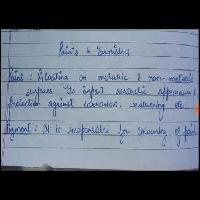 Paints & Varnishes
Paint : Coating on metallic & non-metallic
surfaces to impart aesthetic appearance &
protection against corrosion, weathering etc.
Pigment : It is responsible for colouring of paint